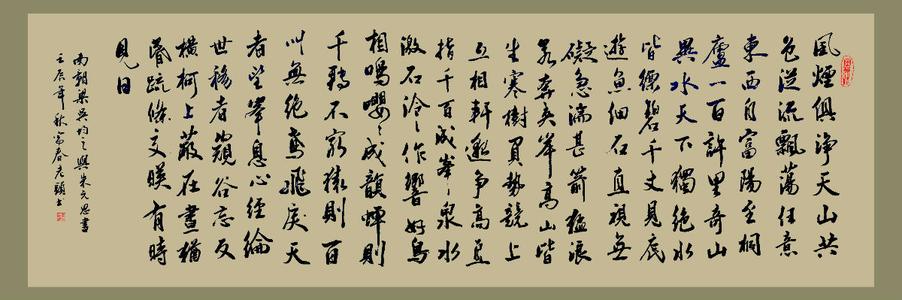 風煙俱淨天山共
色從流飄蕩任意
東西自富陽至桐
廬一百許里奇山
異水天下獨絕水
皆縹碧千丈見底
遊魚細石直視無
礙急湍甚箭猛浪
若奔夾岸高山皆
生寒樹負勢競上
互相軒邈爭高直
指千百成峯〻泉水
激石泠〻作響好鳥
相鳴嚶〻成韻蟬則
千轉不窮猿則百
叫無絕鳶飛戾天
者望峯息心經綸
世務者窺谷忘反
橫柯上蔽在晝猶
昏疏條交映有時
見日
南朝梁吳均之與朱元思書
壬辰年秋富春老